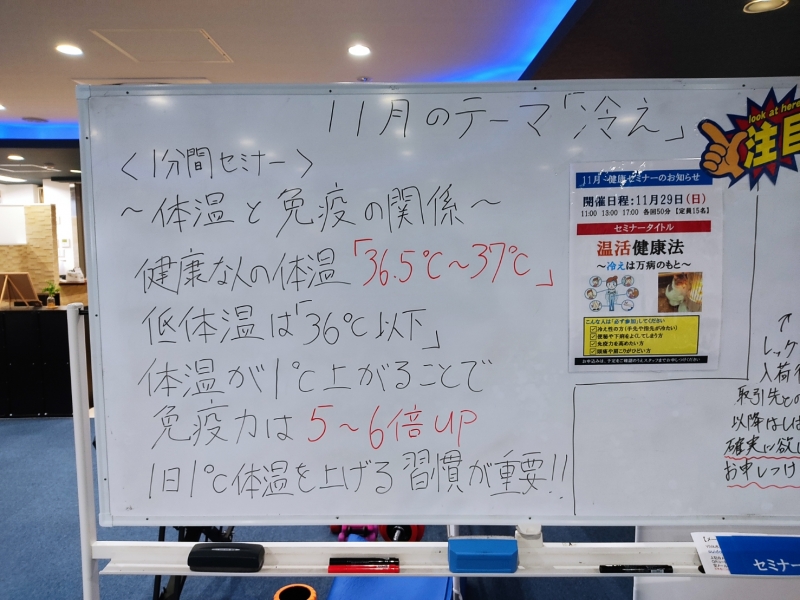 11月のテーマ「冷え」
look at here
注目
<1分間セミナー>
～体温と免疫の関係～
健康な人の体温「36.5℃～37℃」
低体温は「36℃以下」
体温が1℃上がることで
免疫力は5～6倍UP
1日1℃体温を上げる習慣が重要!!
11月 健康セミナーのお知らせ
開催日程:11月29日(日)
11:00 13:00 17:00 各回50分【定員15名】
セミナータイトル
温活健康法
～冷えは万病のもと～
こんな人は「必ず参加」してください
冷え性の方(手先や指先が冷たい)
便秘や下痢をよくしてしまう方
免疫力を高めたい方
頭痛や肩こりがひどい方
↑
レック
入荷
取引先との
以降はしば
確実に欲し
お申しつけ
セミナー